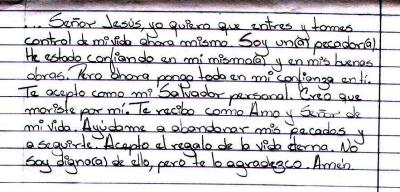 ... Señor Jesús, yo quiero que entres y tomes
control de mi vida ahora mismo. Soy un(a) pecador(a)
He estado confiando en mí mismo(a) y en mis buenas
obras. Pero ahora pongo toda en mi confianza en tí.
Te acepto como mi Salvador personal. Creo que
moriste por mí. Te recibo como Amo y Señor de
mi vida. Ayúdame a abandonar mis pecados y
a seguirte. Acepto el regalo de la vida eterna. No
soy digno(a) de ello, pero te lo agradezco. Amén.